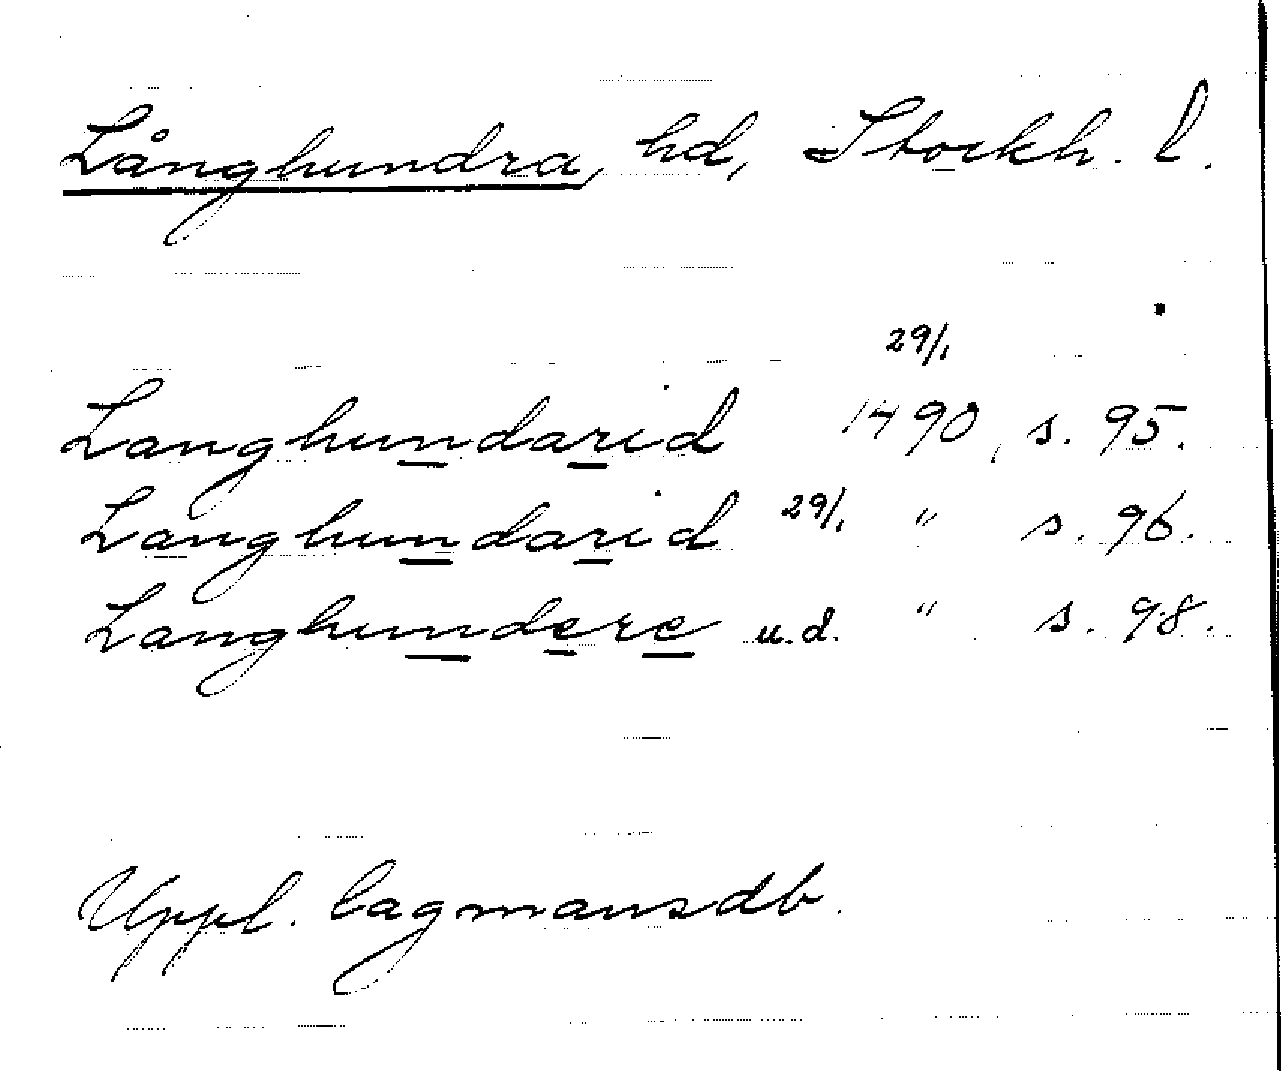 Långhundra, hd, Stockh. l.
29/1
Langhundarid 1490, s. 95.
Langhundarid 29/1 " s. 96.
Langhundere u.d. " s. 98.
Uppl. lagmansdb.